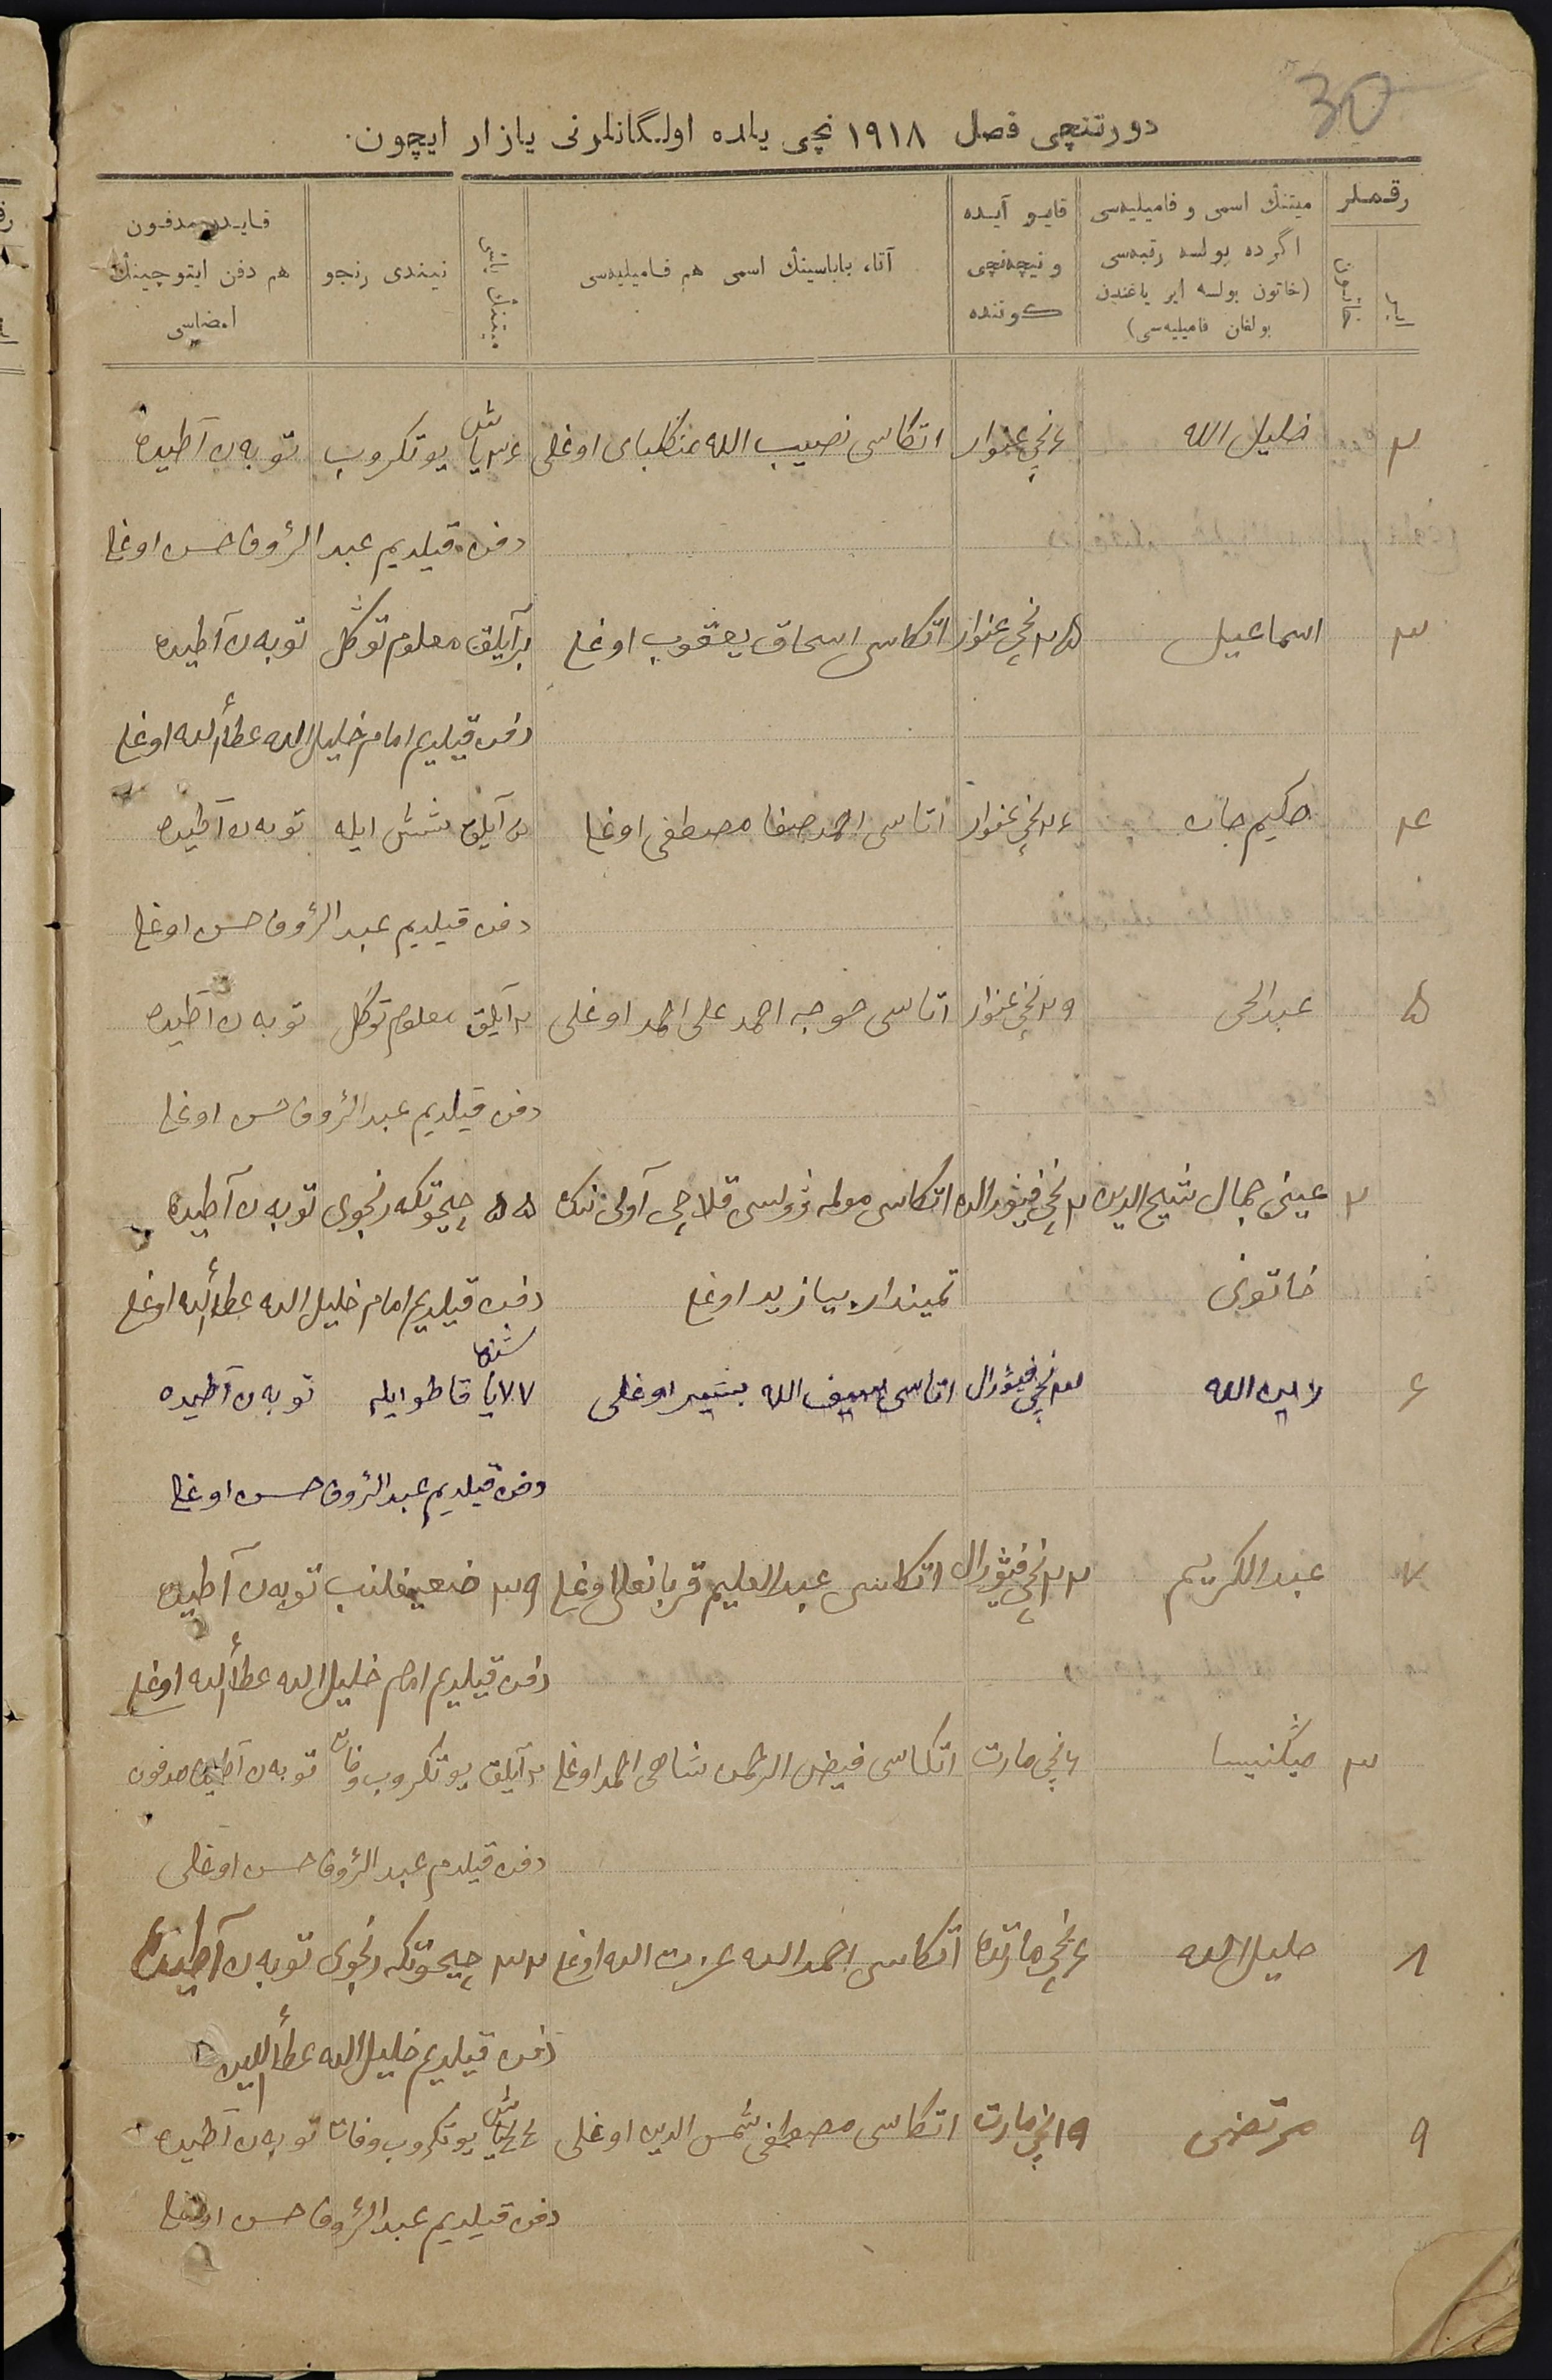 30
دورتنچی فصل ١٩١٨ نچی یلده اولگانلرنی یازار ایچون.
رقملر
میتنڭ اسمی و فامیلیه‌سی اگرده بولسه رتبه‌سی (خاتون بولسه ایر یاغندن بولغان فامیلیه‌سی)
قایو آیده و نیچه‌نچی کوننده
آتاء باباسینڭ اسمی هم فامیلیه‌سی
میتنڭ یاشی
نیندی رنجو
قایدن مدفون هم دفن ایتوچینڭ امضاسی
٢ خلیل الله ٤ نچی غنوار اتکاسی نصیب الله منکلبای اوغلی ٣٤ یاش یوتکروب توبه‌ن آطیده
دفن قیلدیم عبد الرؤف حسن اوغلی
٣ اسماعیل ٢٥ نچی غنوار اتکاسی اسحاق یعقوب اوغلی بر آیلق معلوم توگل توبه‌ن آطیده
دفن قیلدیم امام خلیل الله عطأالله اوغلی
٤ حکیم جان ٢٤ نچی غنوار اتاسی احمد صفا مصطفی اوغلی آیلق شش ایله توبه‌ن آطیده
دفن قیلدیم عبد الرؤف حسن اوغلی
٥ عبدالحی ٢٩ نچی غنوار اتاسی خوجه احمد علی احمد اوغلی ٢ آیلق معلوم توگل توبه‌ن آطیده
دفن قیلدیم عبد الرؤف حسن اوغلی
٢ عینی جمال شیخ الدین ٢ نچی فیورالده اتکاسی قلاچی آولی ننک ٥٥ چیحوتکه رنجوی توبه‌ن آطیده
خاتونی بیازید اوغلی دفن قیلدیم امام خلیل الله عطأالله اوغلی
٦ الله ٣ نچی فیورال اتاسی سیف الله بشیر اوغلی ٧٧ یاشنده قاطو ایله توبه‌ن آطیده
دفن قیلدیم عبد الرؤف حسن اوغلی
٧ عبدالکریم ٢٢ نچی فیورال اتکاسی عبدالعلیم قربانعلی اوغلی ٣٩ ضعیفلنب توبه‌ن آطیده
دفن قیلدیم امام خلیل الله عطأالله اوغلی
٣ ٤ نچی مارت اتکاسی فیض الرحمن شاهی احمد اوغلی ٢ آیلق یوتکروب وفات توبه‌ن آطیده مدفون
دفن قیلدم عبد الرؤف حسن اوغلی
٨ خلیل الله ٤ نچی مارتده اتکاسی احمدالله عزت الله اوغلی ٣٢ چیحوتکه رنجوی توبه‌ن آطیده
دفن قیلدیم خلیل الله عطأاللین
٩ مرتضی ١٩ نچی مارت اتکاسی مصطفی شمس الدین اوغلی ٤٤ یاش یوتکروب وفات توبه‌ن آطیده
دفن قیلدیم عبد الرؤف حسن اوغلی